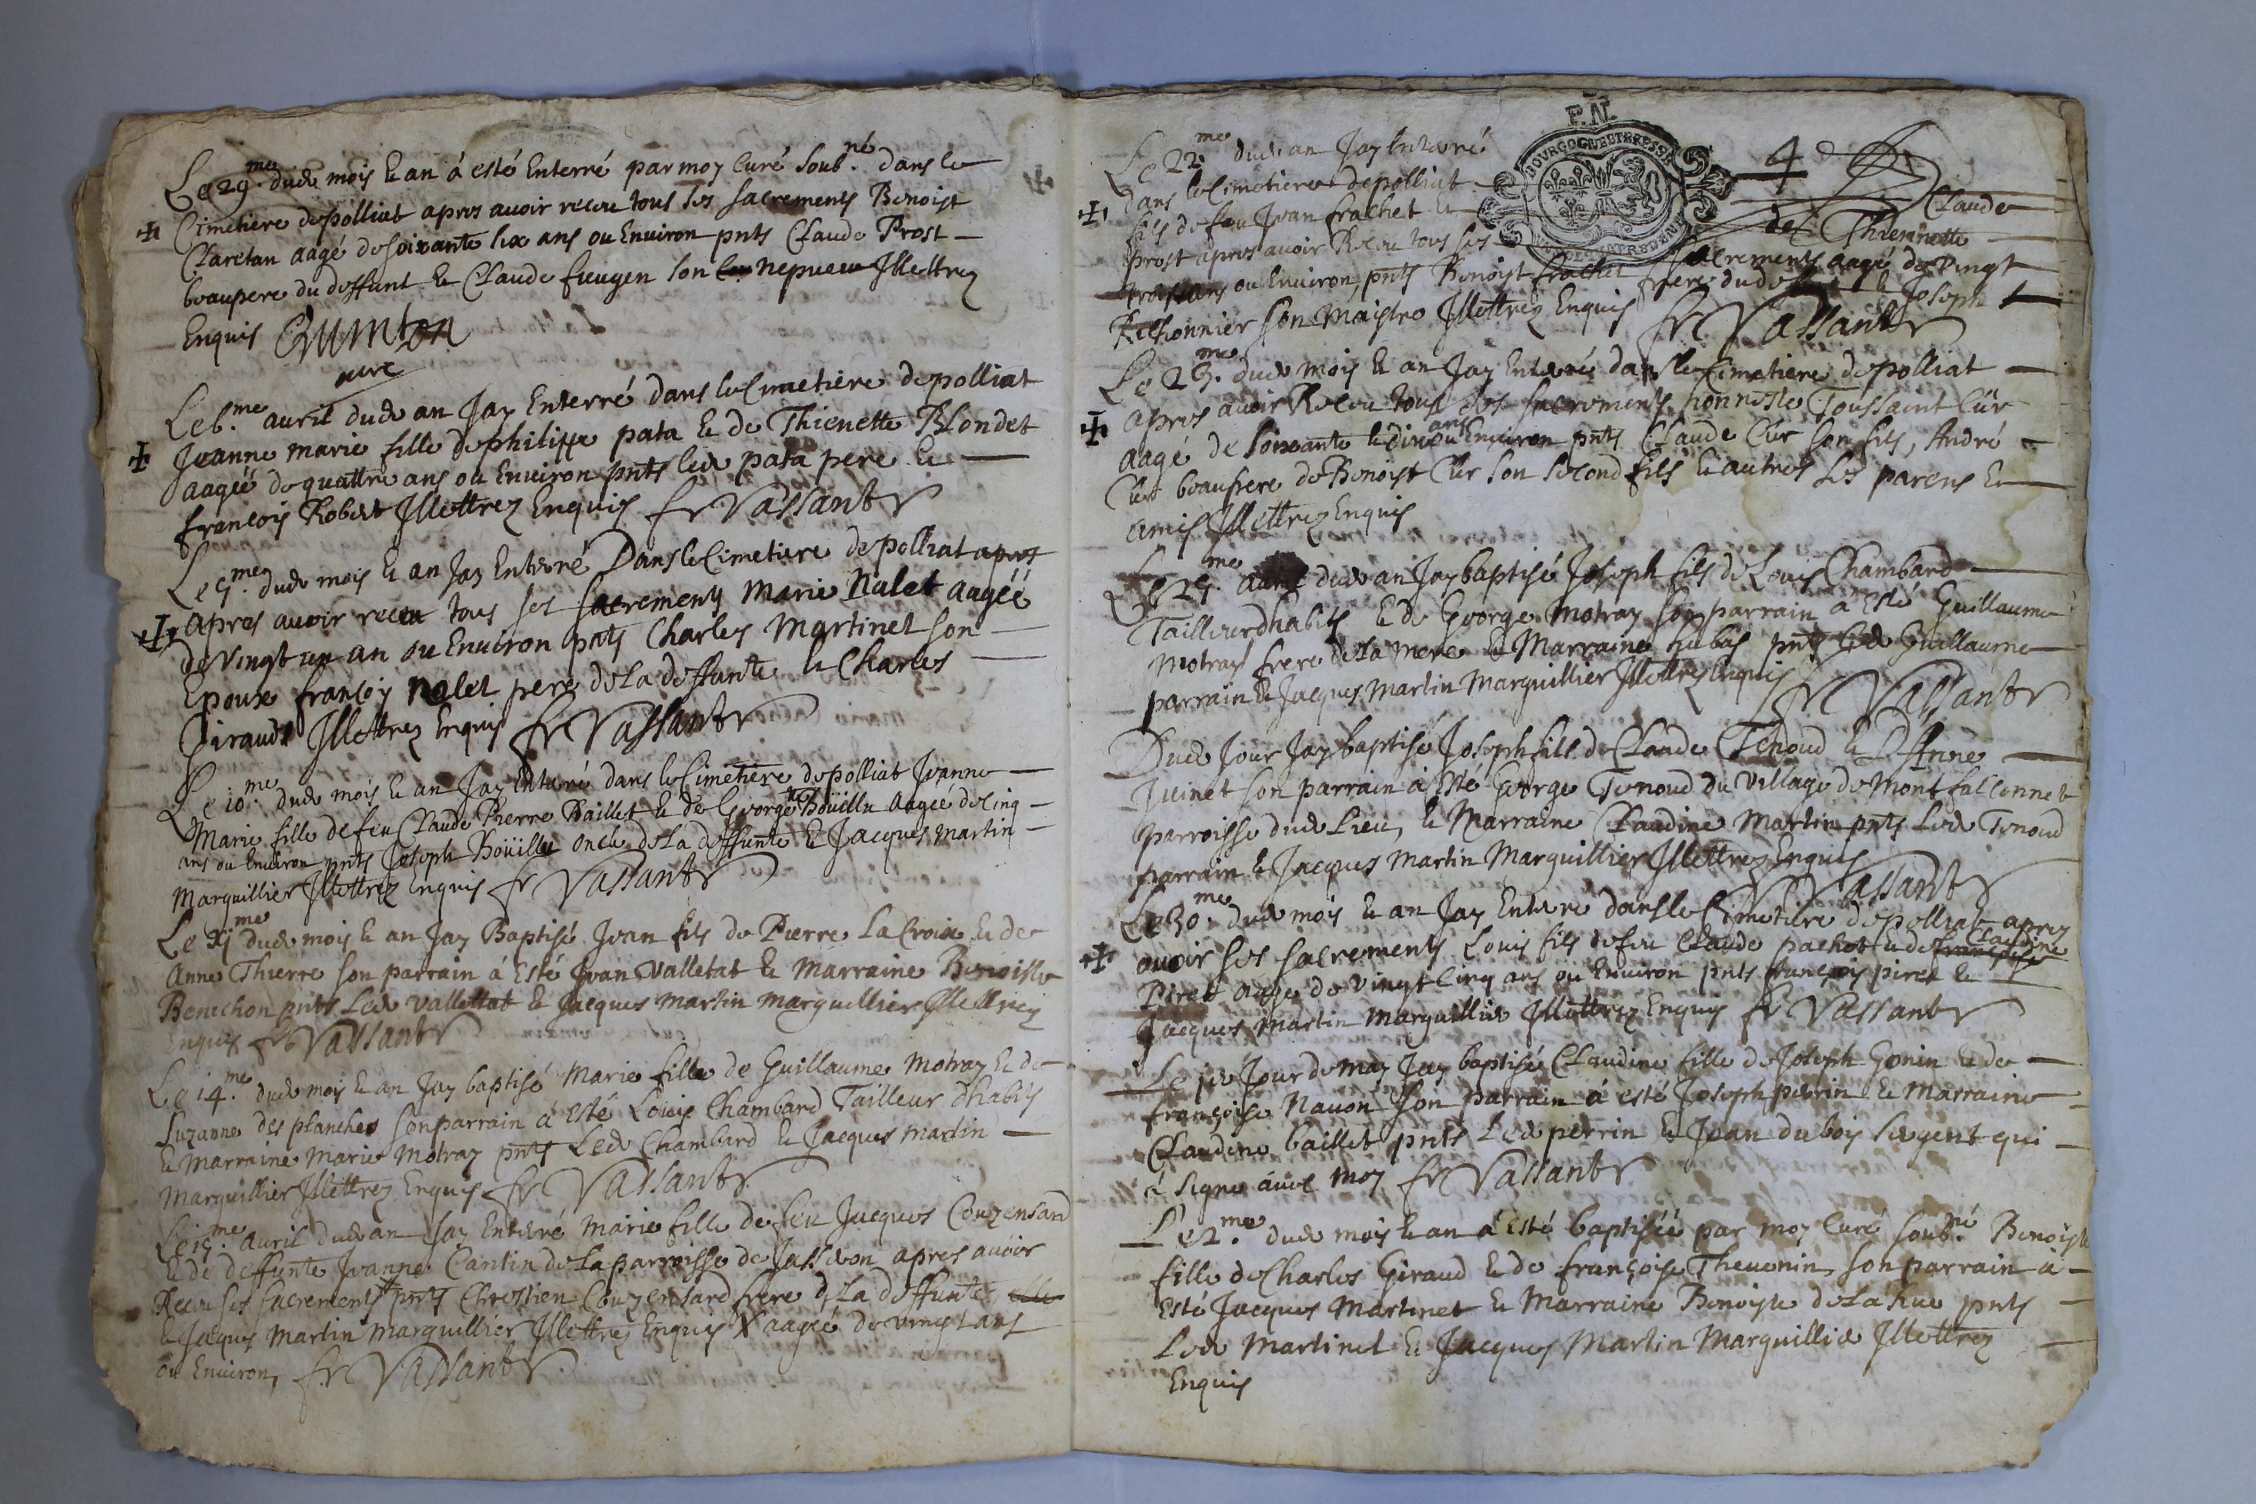 Le 29.me dud mois & an á esté Enterré par moy Curé soub.né dans le
Cimetiere de polliat apres auoir receu tous ses sacrements Benoist
Claretan aagé de soixante six ans ou Enuiron pnts Claude Prost
beaupere du deffunt & Claude feugen son nepueu Illettrez
Enquis Quinson
curé
Le 6.me auril dud an Jay Enterré dans le Cimetiere de polliat
Jeanne marie fille de philippe pata & de Thienette Blondet
aagée de quattre ans ou Enuiron pnts led pata pere &
francois Robert Illettrez Enquis fr Vassant
Le 9.me dud mois & an Jay Enterré Dans le Cimetiere de polliat apres
apres auoir receu tous ses sacrements Marie Nalet aagéé
de vingt un an ou Enuiron pnts Charles Martinet son
Epoux francois Nalet pere de La deffunte & Charles
Giraud Illettrez Enquis fr Vassant
Le 10.me dud mois & an Jay Enterré dans le Cimetiere de polliat Jeanne
Marie fille de feu Claude Pierre Paillet & de George Boüillu aagéé de Cinq
ans ou Enuiron pnts Joseph Boüillu oncle de La deffunte & Jacques Martin
Marguillier Illettrez Enquis fr Vassant
Le xi.me dud mois & an Jay Baptisé Jean fils de Pierre La Croix & de
Anne Thierre son parrain á Esté Jean Valletat & Marraine Benoiste
Benechon pnts Led Vallettat & Jacques Martin marguillier Illettrez
Enquis fr Vassant
Le 14.me dud mois & an Jay baptisé Marie fille de Guillaume Motray & de
Suzanne des planches son parrain á Esté Louis Chambard Tailleur dhabits
& Marraine Marie Motray pnts Led Chambard & Jacques Martin
Marguillier Illettrez Enquis fr Vassant
Le 15.me auril dud an Jay Enterré Marie fille de feu Jacques Couzensard
& de deffunte Jeanne Cantin de La parroisse de Jasseron apres auoir
Receu ses sacrements pnts Chrestien Couzensard frere de La deffunte
& Jacques Martin Marguillier Illettrez Enquis X aagéé de vingt ans
ou Enuiron, fr Vassant
P.N.
BOVRGOGNE ET BRESSE
4
Le 22.me dud an Jay Enterré
dans le Cimetiere de polliat Claude
fils de feu Jean frachet & de Thiennette
prost apres auoir Receu tous ses sacrements aagé de vingt
trois ans ou Enuiron, pnts Benoist frachet frere dud & Joseph
Rethonnier son Maistre Illettrez Enquis fr Vassant
Le 23.me dud mois & an Jay Enterré dans le Cimetiere de polliat
apres auoir Receu tous ses sacrements honneste Toussaint Cür
aagé de soixante & dix ans ou Enuiron pnts Claude Cür son fils, André
Cür beaufrere de Benoist Cür son second fils & autres ses parens &
amis Illettrez Enquis
Le 25.me auril dud an Jay baptisé Joseph fils de Louis Chambard
Tailleur dhabits & de George Motray son parrain á Esté Guillaume
Motray frere de La mere & Marraine pnts Led Guillaume
parrain & Jacques Martin Marguillier Illettrez Enquis
fr Vassant
Dud Jour Jay baptisé Joseph fils de Claude Tenoud & d'Anne
Juinet son parrain á Esté George Tenoud du Village de Montfalconnet
parroisse dud Lieu, & Marraine Claudine Martin pnts Led Tenoud
parrain & Jacques Martin Marguillier Illettrez Enquis
fr Vassant
Le 30.me dud mois & an Jay Enterré dans le Cimetiere de polliat apres
auoir ses sacrements Louis fils de feu Claude pachot & de francoise Claudine
Piret aagé de vingt Cinq ans ou Enuiron pnts francois piret &
Jacques Martin Marguillier Illettrez Enquis fr Vassant
Le 1er Jour de may Jay baptisé Claudine fille de Joseph Gonin & de
françoise Nauon son parrain á esté Joseph perrin & Marraine
Claudine baillet pnts Led perrin & Jean dubois sergent qui
á signé auec moy fr Vassant
Le 2.me dud mois & an á Esté baptiséé par moy Curé soub.né Benoiste
fille de Charles Giraud & de françoise Theuenin, son parrain á
Esté Jacques Martinet & Marraine Benoiste de La Rue pnts
Led Martinet & Jacques Martin Marguillier Illettrez
Enquis